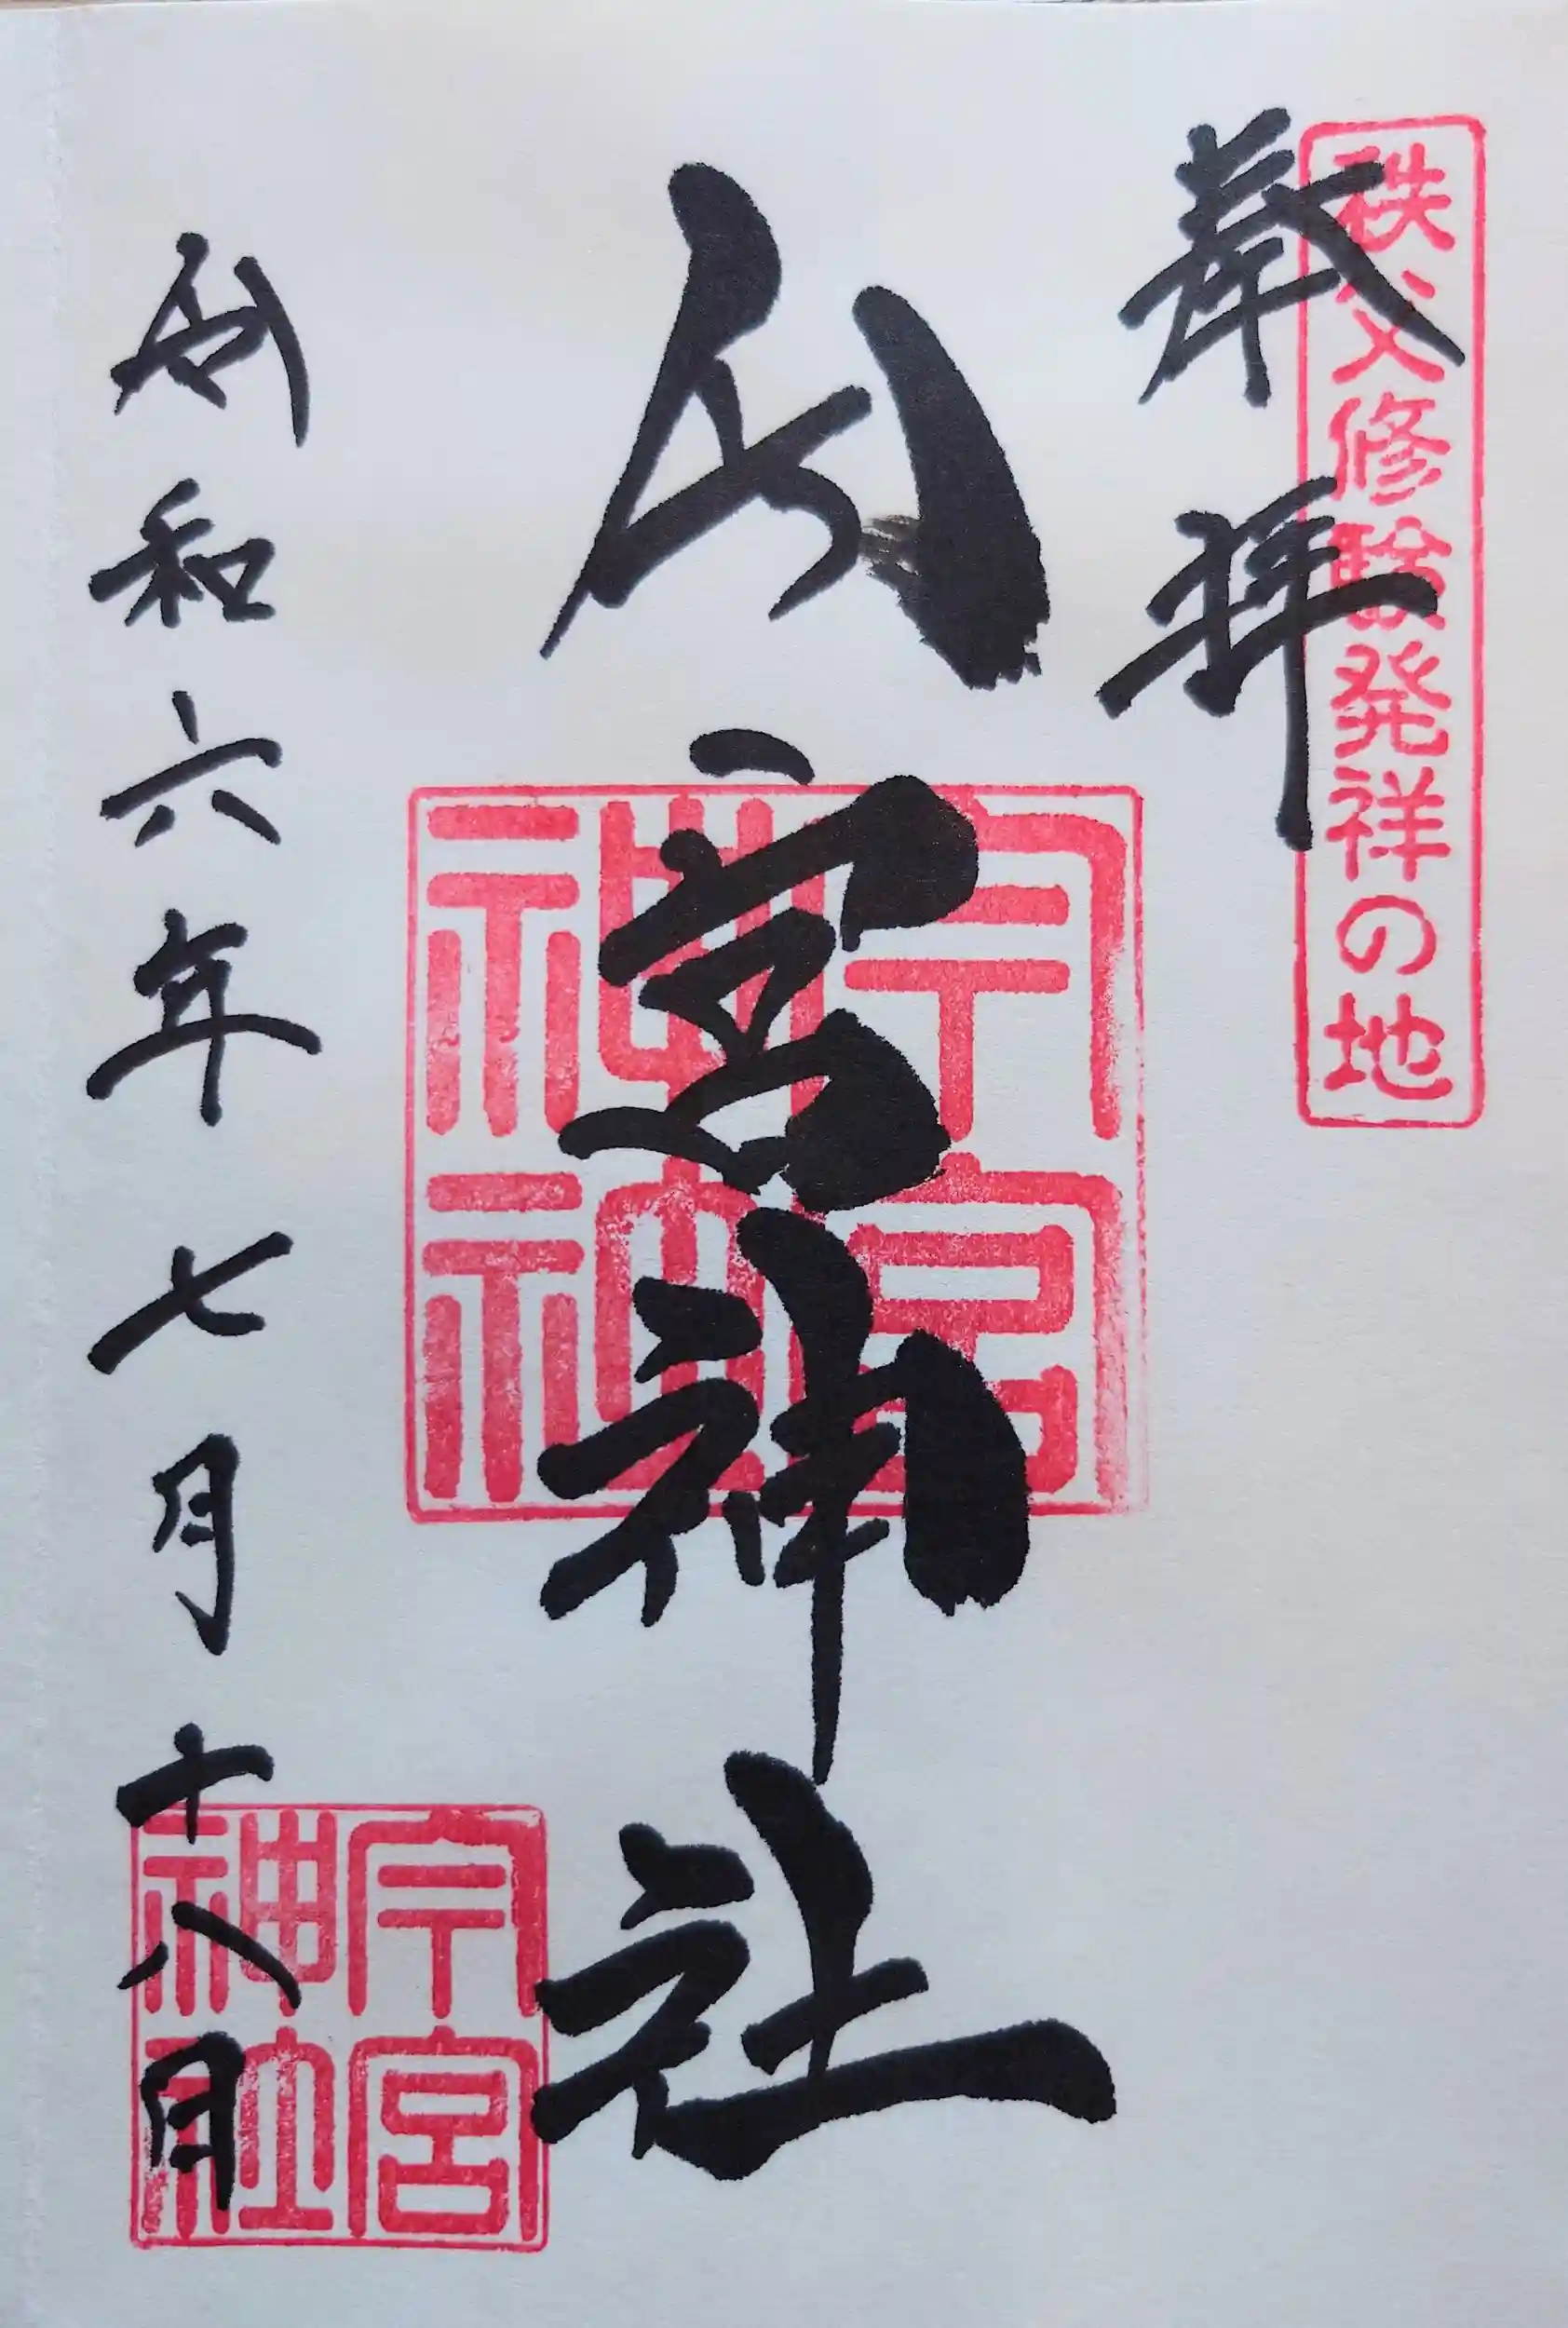 秩父修験発祥の地
奉拝
今宮神社
今宮
神社
令和六年七月十八日
今宮
神社